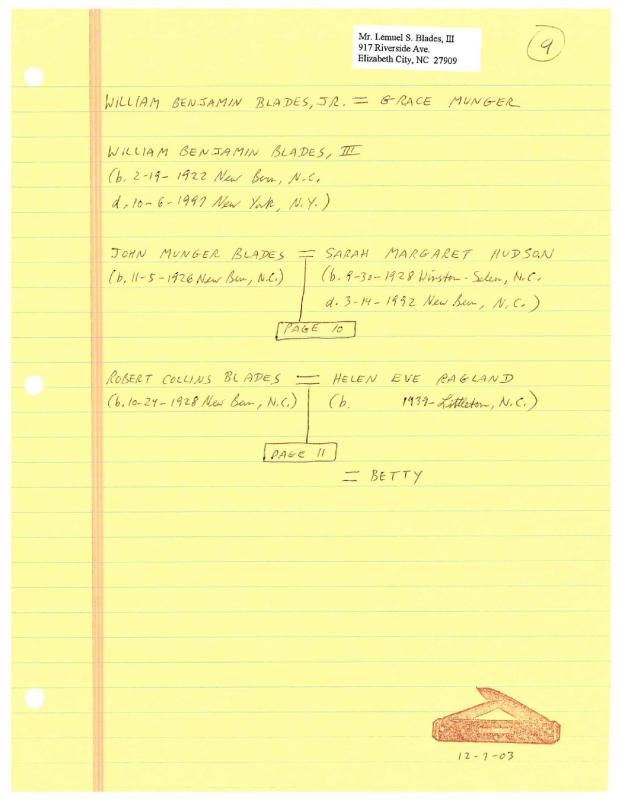 Mr. Lemuel S. Blades, III
917 Riverside Ave.
Elizabeth City, NC 27909
9
WILLIAM BENJAMIN BLADES, JR. = GRACE MUNGER
WILLIAM BENJAMIN BLADES, III
(b. 2-19-1922 New Bern, N.C.
d. 10-6-1997 New York, N.Y.)
JOHN MUNGER BLADES = SARAH MARGARET HUDSON
(b. 11-5-1926 New Bern, N.C.) (b. 9-30-1928 Winston-Salem, N.C.
d. 3-14-1992 New Bern, N.C.)
PAGE 10
ROBERT COLLINS BLADES = HELEN EVE RAGLAND
(b. 10-24-1928 New Bern, N.C.) (b. 1939-Littleton, N.C.)
PAGE 11
= BETTY
12-7-03